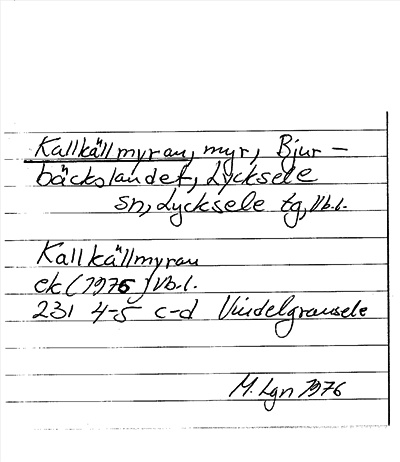 Kallkällmyran, myr, Bjur-
bäckslandet, Lycksele
sn, Lycksele tg, Vb.l.
Kallkällmyran
ek (1976) Vb.l.
231 4-5 c-d Vindelgransele
M. Lgn 1976